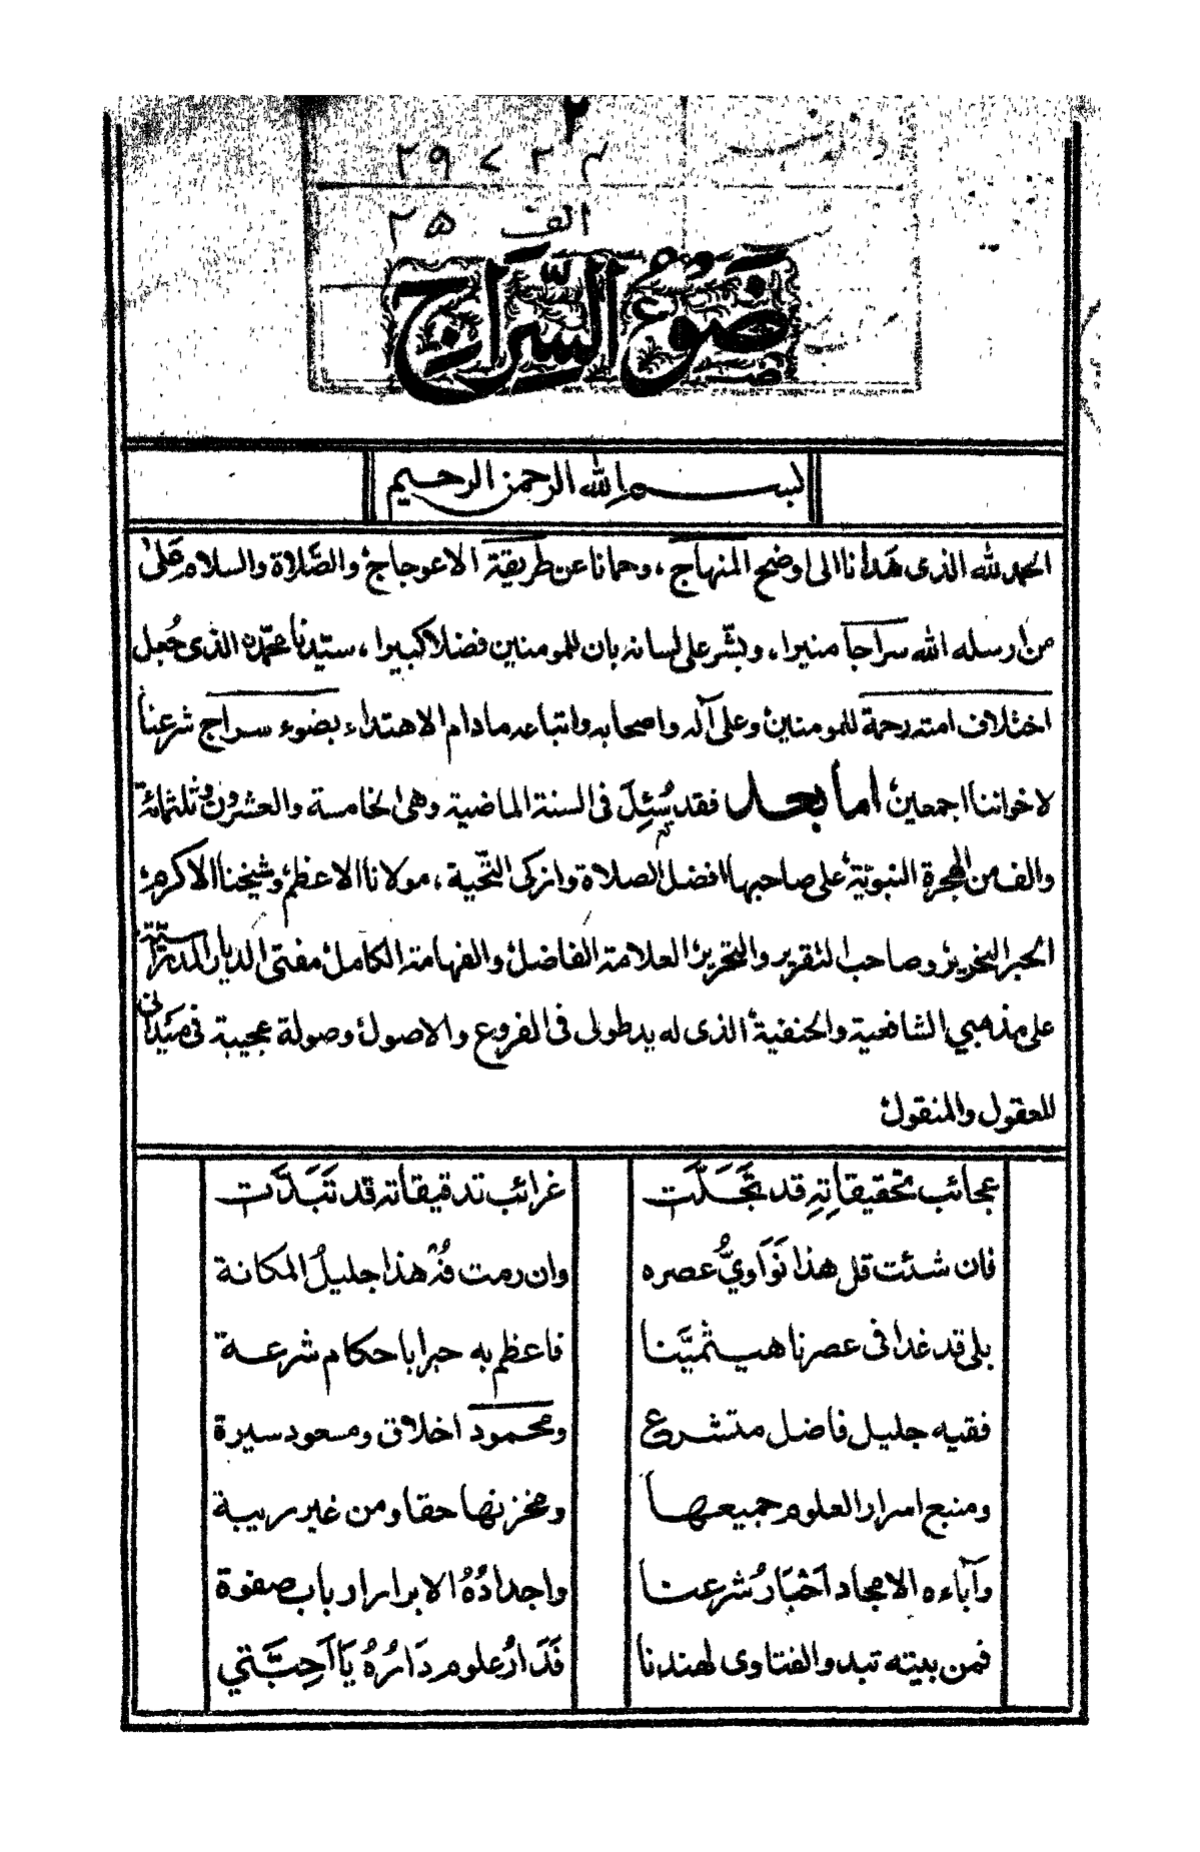 ٢
٢٩ ٧ ٢٣
الف ٢٥
ضوء السِّرَاج
بسم الله الرحمن الرحيم
الحمد لله الذى هَدانا الى اوضح المنهاج، وحمانا عن طريقة الاعوجاج والصَّلاة والسلام عَلىٰ
من ارسله الله سراجا منيرا، وبشّر على لسانه بان للمومنين فضلا كبيرا، سيّدنا محمّد الذى جُعل
اختلاف امته رحمة للمومنين وعلى آله واصحابه واتباعه مادام الاهتداء بضوء سراج شرعنا
لاخواننا اجمعين امابعد فقد سُئِلَ فى السنة الماضية وهى الخامسة والعشرون وثلثمائة
والف من الهجرة النبويّة على صاحبها افضل الصلاة وازكى التحّية، مولانا الاعظم وشيخنا الاكرم
الحبر النحرير وصاحب التقرير والتحرير العلامة الفاضل والفهامة الكامل مفتى الديار المدراسيّة
على مذهبي الشافعية والحنفية الذى له يد طولى فى الفروع والاصول وصولة عجيبة فى مَيْدانى
المعقول والمنقول
عجائب تحقيقاتِهِ قد تجَّلَّت غرائب تدقيقاته قد تَبَدَّت
فان شئت قل هذا نَوَاوِيُّ عصره وان رمت فُهْ هذا جليلُ المكانة
بلى قد غدا فى عصرنا هيثميَّنا فاعظم به حبرا باحكام شرعة
فقيه جليل فاضل متشرع ومحمود اخلاق ومسعود سيرة
ومنبع اسرار العلوم جميعها ومخزنها حقا ومن غير مريبة
وآباءه الامجاد اَخْبَارُ شرعنا واجدادُهُ الابرار ارباب صفوة
فمن بيته تبدو الفتاوى لهندنا فَدَارُ علوم دَارُهُ يَا اَحِبَّتي